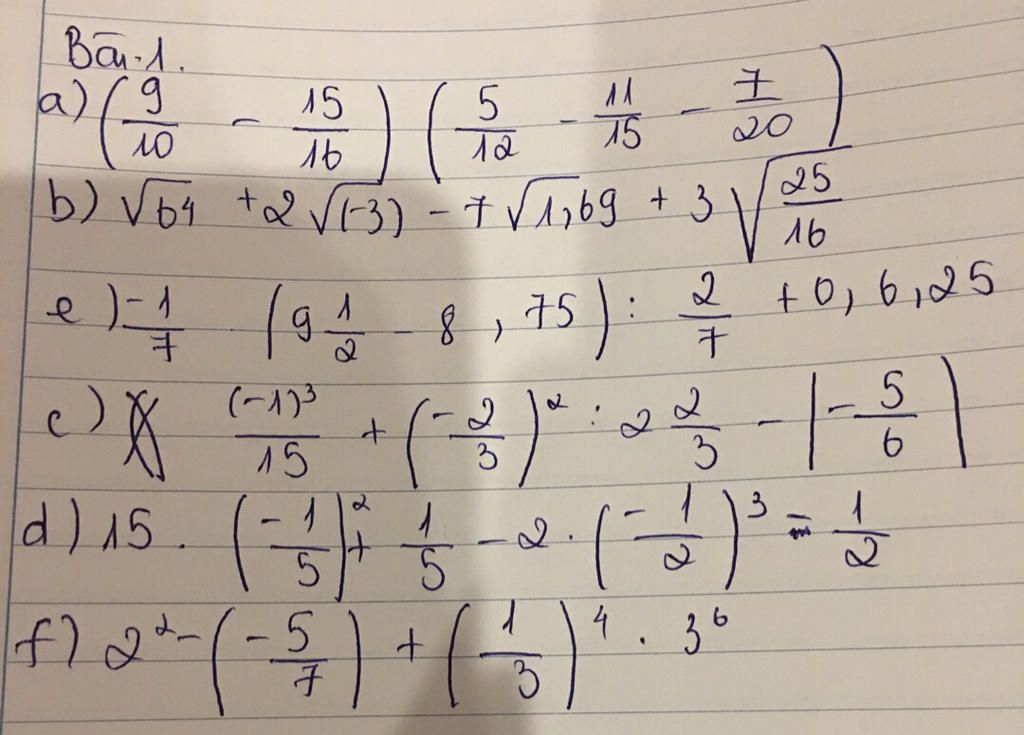 Bài 1.
a) (9/10 - 15/16) (5/12 - 11/15 - 7/20)
b) √64 + 2√(-3) - 7√1,69 + 3√(25/16)
e) -1/7 . (9 1/2 - 8,75) : 2/7 + 0,6,25
c) (-1)³/15 + (-2/3)² : 2 2/3 - |-5/6|
d) 15 . (-1/5)² + 1/5 - 2 . (-1/2)³ = 1/2
f) 2² - (-5/7) + (1/3)⁴ . 3⁶